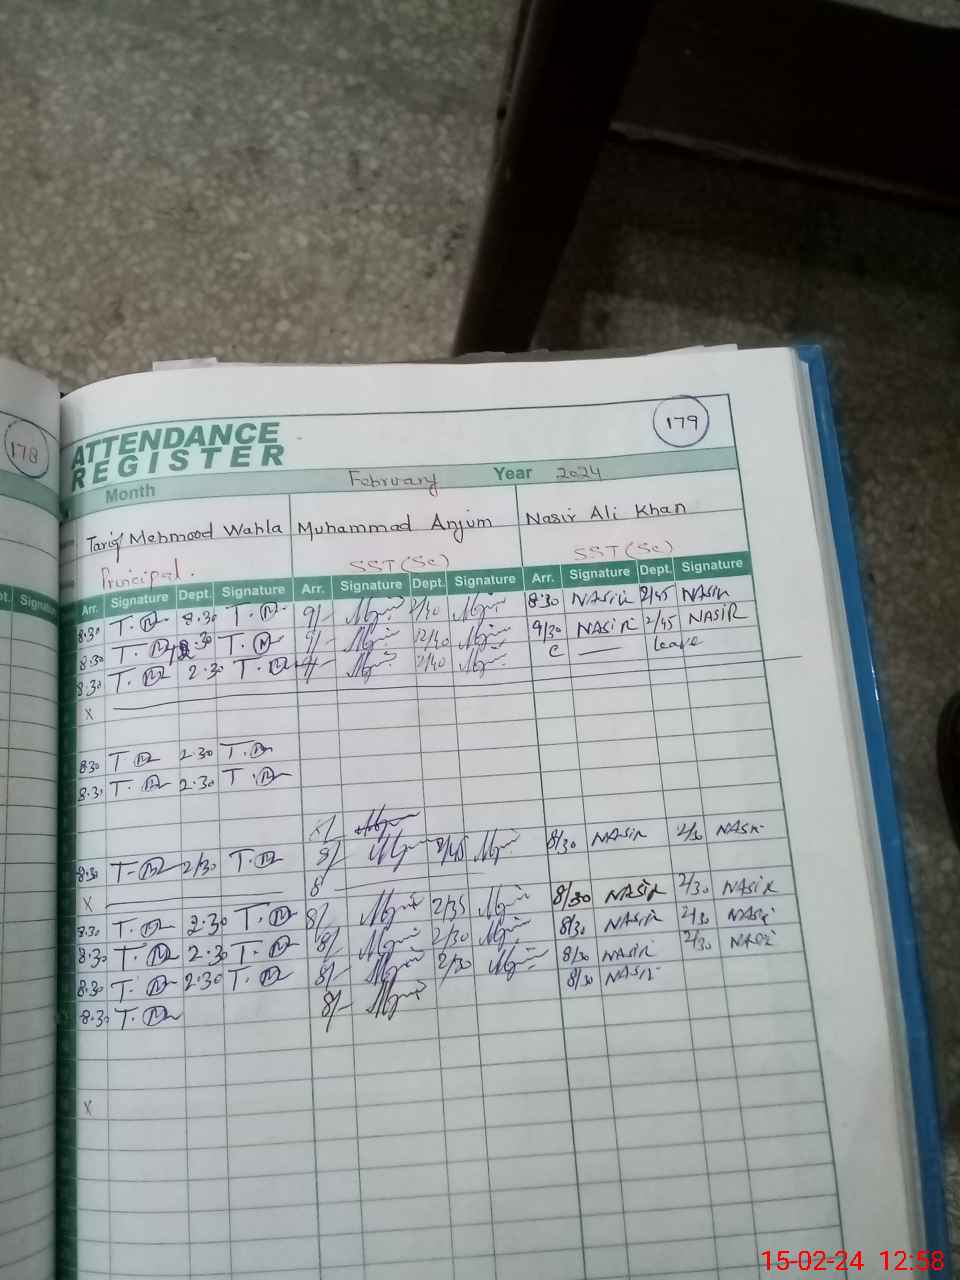 178
179
ATTENDANCE
REGISTER
Month February Year 2024
Tariq Mehmood Wahla Muhammad Anjum Nasir Ali Khan
Principal. SST (Sc) SST (Sc)
pt. Signatu Arr. Signature Dept. Signature Arr. Signature Dept. Signature Arr. Signature Dept. Signature
8.30 T. M 8.30 T. M 9/- 8.30 NASIR 2/45 NASIR
8.30 T. M 2.30 T. M 9/- 12/40 9/30 NASIR 2/45 NASIR
8.30 T. M 2.30 T. M 9/- leave
X
8.30 T. M 2.30 T. M
8.30 T. M 2.30 T. M
8.30 T. M 2/30 T. M 8/- 2/45 8/30 NASIR 2/30 NASIR
X 8
8.30 T. M 2.30 T. M 8/- 2/35 8/30 NASIR 2/30 NASIR
8.30 T. M 2.30 T. M 8/- 2/30 8/30 NASIR 2/30 NASIR
8.30 T. M 2.30 T. M 8/- 2/30 8/30 NASIR 2/30 NASIR
8.30 T. M 8/- 8/30 NASIR
X
15-02-24 12:58